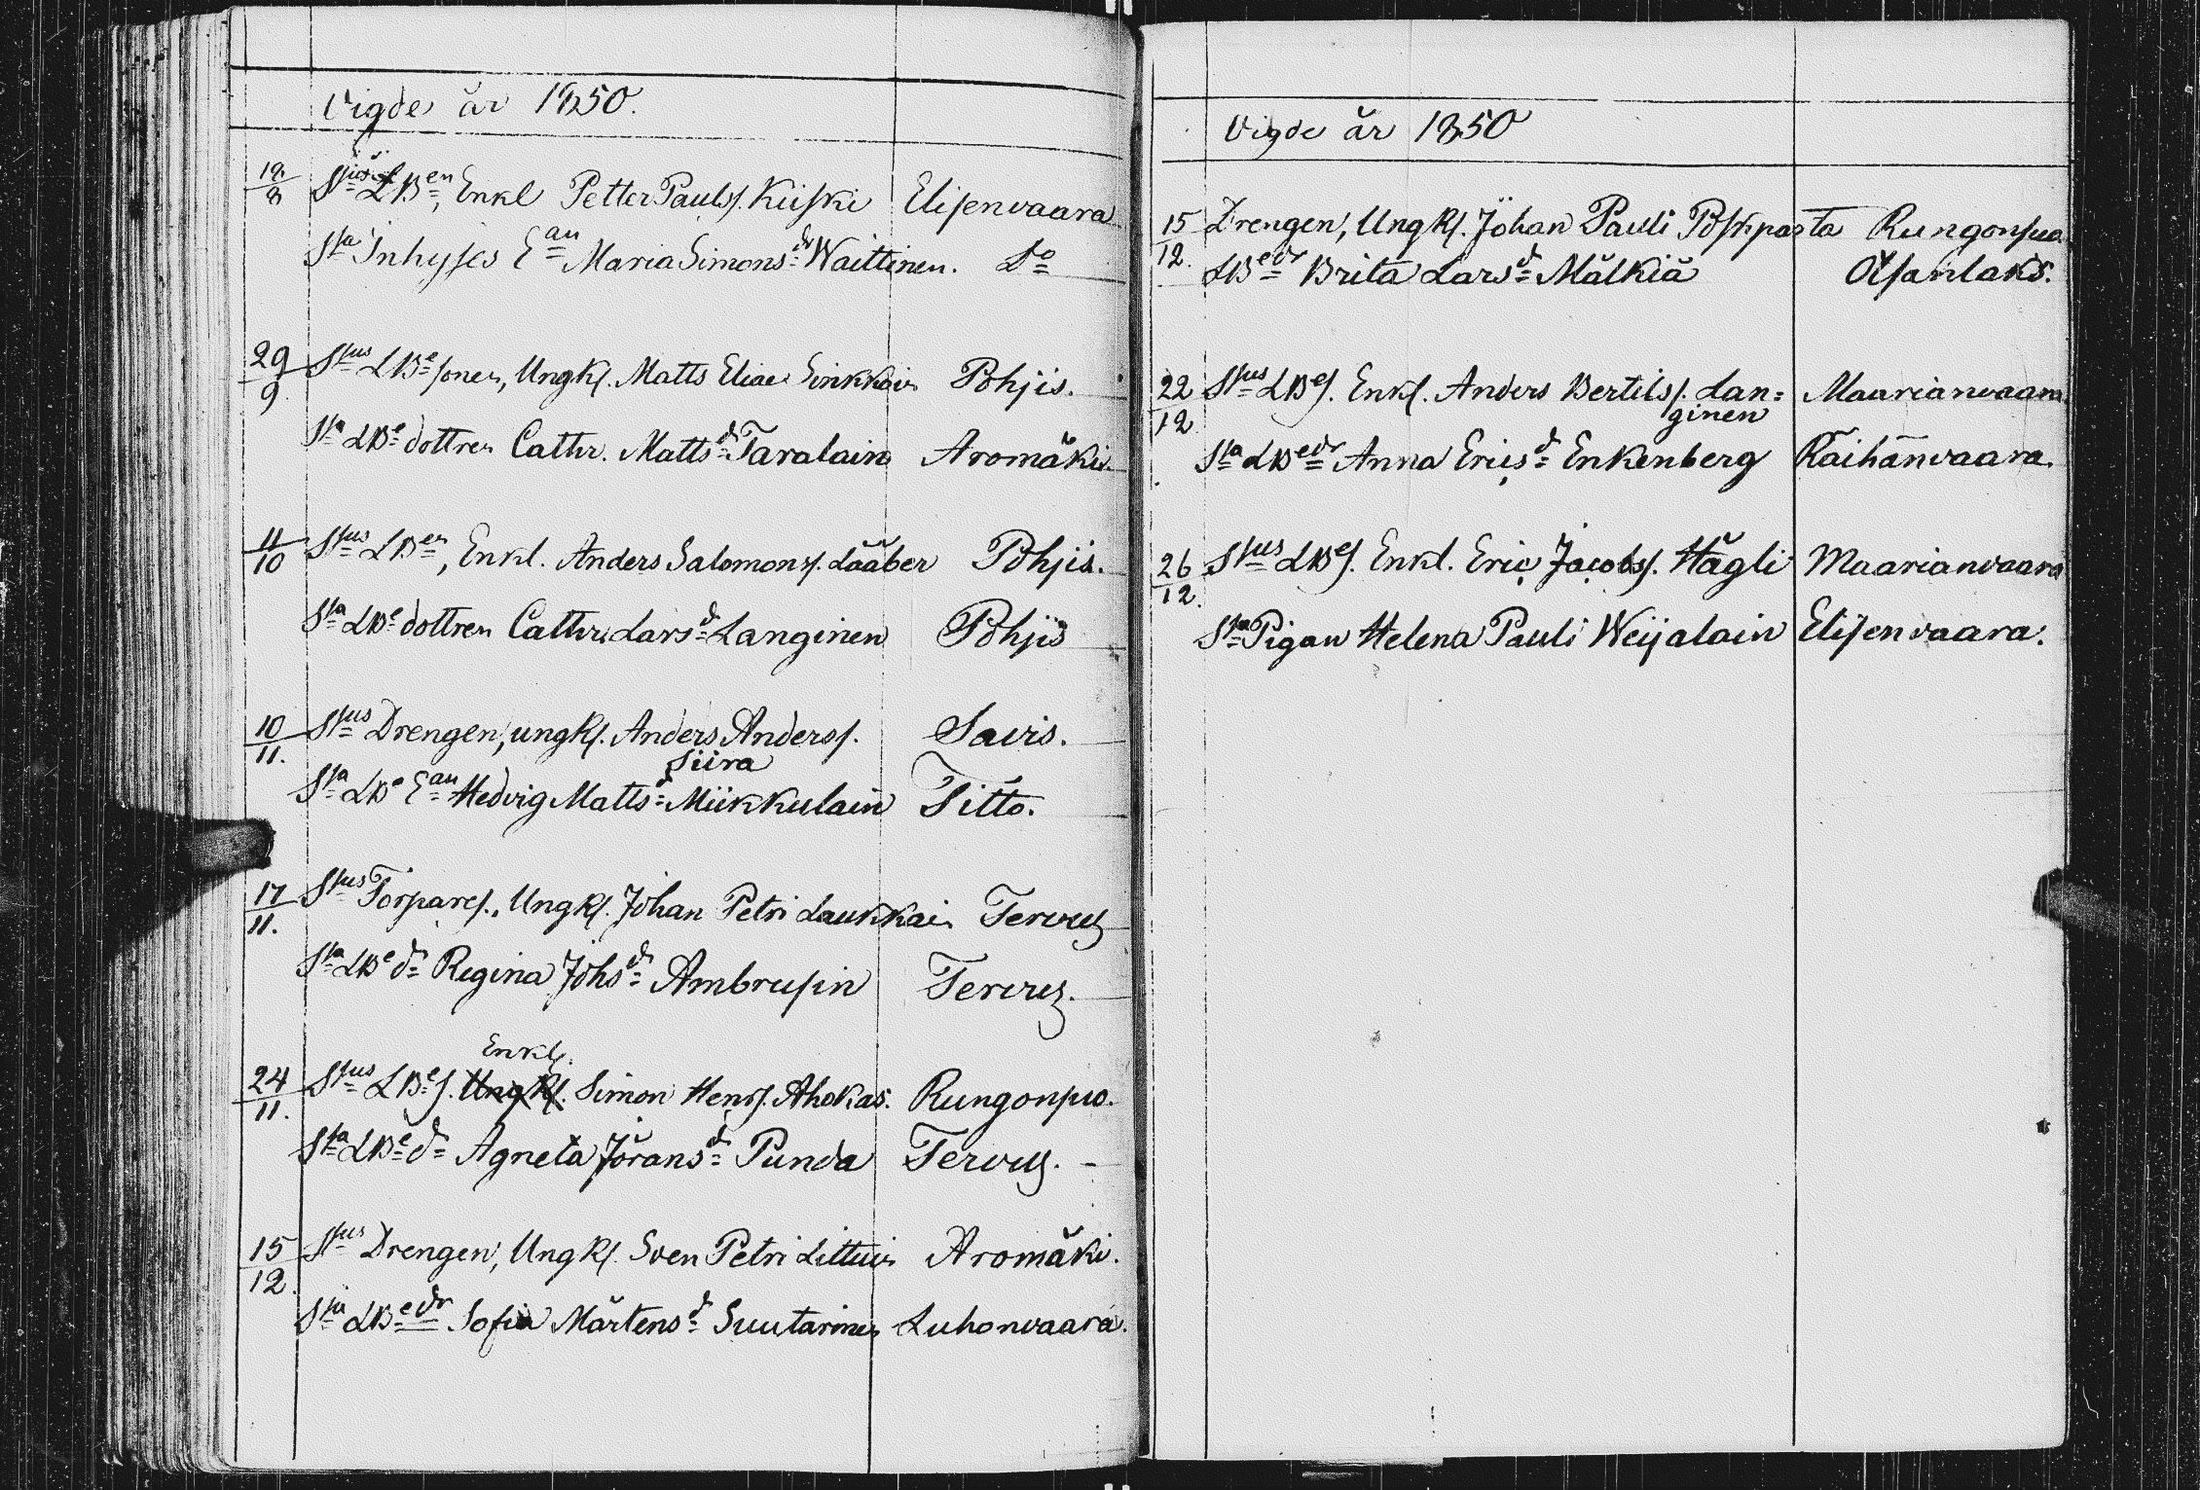 Vigde år 1850.
18/8 Sjus LBen, Enkl Petter Pauls. Kiiski Elisenvaara
Sja Inhyses Ean Maria Simonsdr Waittinen. Do
29/9 Sjus LBesonen, Ungk. Matts Eliae Sinkkoin Pohjis.
Sja LBedottren Cathr. Mattsdr Taralain Aromäki
11/10 Sjus LBen, Enkl. Anders Salomons. Lääber Pohjis.
Sja LBedottren Cathr. Larsdr Langinen Pohjis
10/11. Sjus Drengen, ungk. Anders Anders. Savis.
Siira
Sja LBe Ean Hedvig Mattsd Miikkulain Titto.
17/11. Sjus Torpares., Ungk. Johan Petri Laukkain
Sja LBe dr Regina Johsdr Ambrusin
Enkl.
24/11. Sjus LBes. Ungk. Simon Hens. Ahokas. Rungonpuo.
Sja LBe dr Agneta Jöransdr Punda
15/12. Sjus Drengen, Ungk. Sven Petri Aromäki.
Sja LBedr Sofia Mårtensd Suutarinen Luhonvaara.
Vigde år 1850
15/12. Drengen, Ungk. Johan Pauli Poskiparta
LBedr Brita Larsd Mälkiä
22/12 Sjus LBes. Enkl. Anders Bertils. Lan= Maarianvaara
ginen
Sja LBedr Anna Ericsd Enkenberg Räihänvaara.
26/12. Sjus LBes. Enkl. Eric Jacobs. Hägli Maarianvaara
Sja Pigan Helena Pauli Weijalain Elisenvaara.